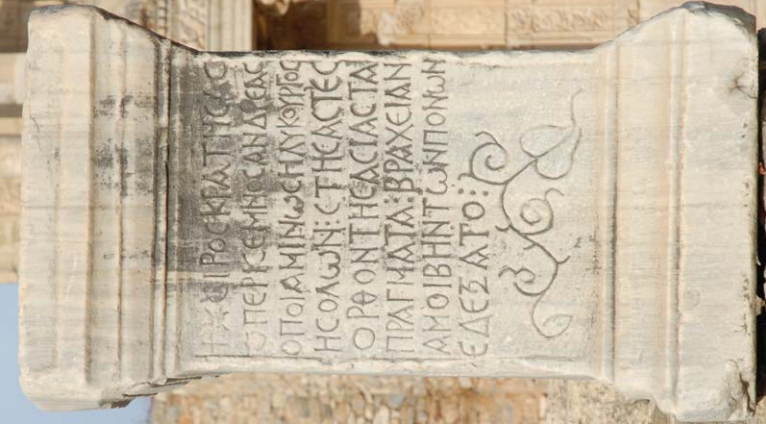 ΗΧΕΙΡΟCΚΡΑΤΗCΑC
ΟΠΕΡΙCΕΜΝΟCΑΝΔΡΕΑC
ΟΠΟΙΑΜΙΝΩCΗΛΥΚΟΥΡΓΟC
ΗCΟΛΩΝ:CΤΗCΑCΤΕC
ΟΡΘΟΝΤΗCΑCΙΑCΤΑ
ΠΡΑΓΜΑΤΑ:ΒΡΑΧΕΙΑΝ
ΑΜΟΙΒΗΝΤΩΝΠΟΝΩΝ
ΕΔΕΞΑΤΟ: